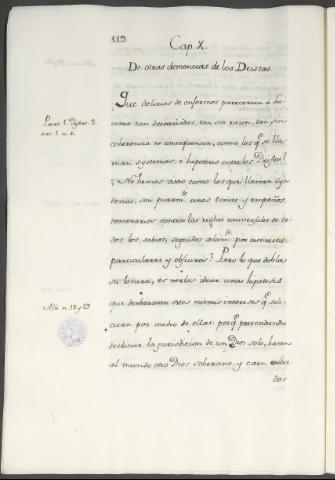 119.
Cap. X.
De otras demencias de los Deistas.
Que delirios de enfermos parecerian à Lu-
ciano tan desvariados, tan sin razon, tan sin
Part. 1. Dissert. 2.
art. 1. n. 2.
coherencia ni consequencia, como los q.e se lla-
man systemas, è hipotesis entre los Deistas?
No hemos visto como los que llaman sys-
temas, son puram.te unos temas y empeños
temerarios contra las reglas universales de to-
dos los sabios, seguidos solam.te por intereses
particulares y obscuros? Pero lo que dobla
su locura, es verlos idear unas hipotesis
que desbaratan esos mismos intereses q.e sole-
Alli n. 12 y 13
citan por medio de ellas: porq.e pretendiendo
declinar la jurisdicion de un Dios solo, hacen
al mundo otro Dios soberano, y caen entre
dos